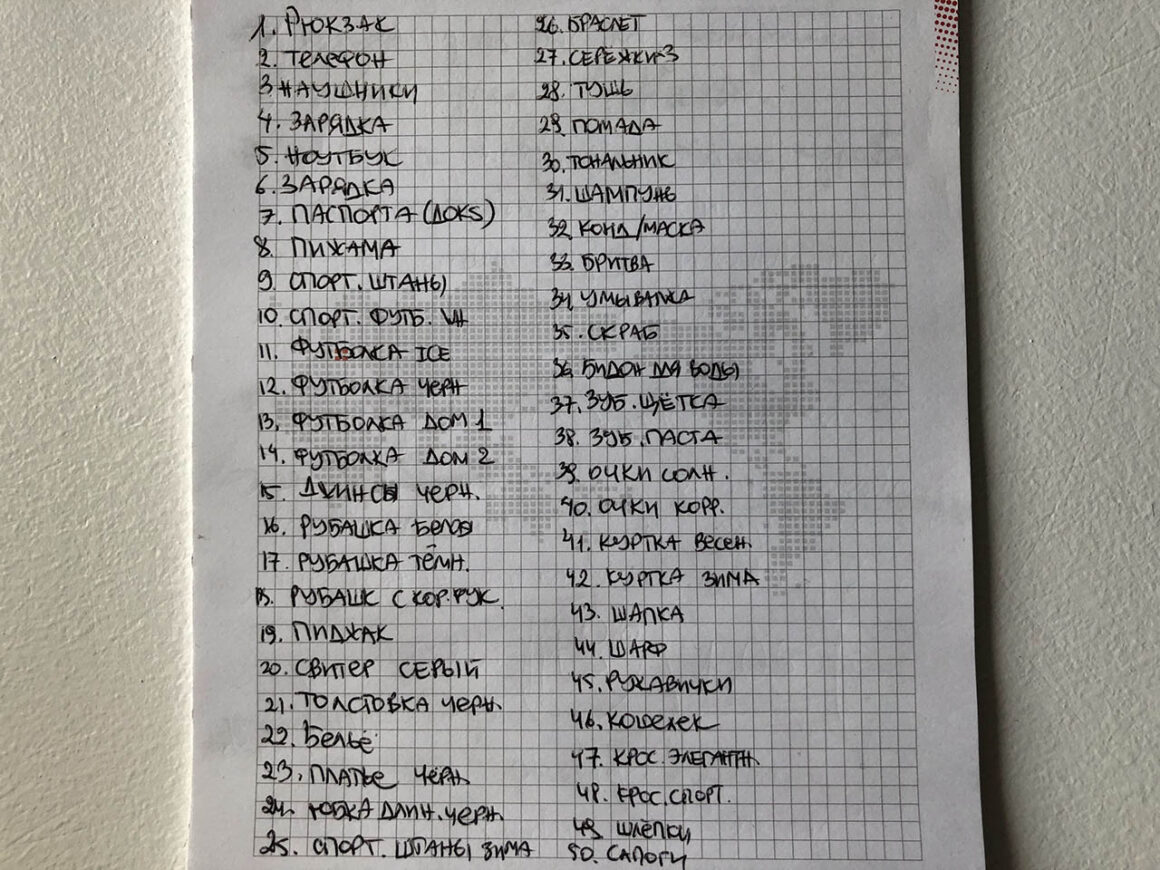 1. Рюкзак
2. Телефон
3 Наушники
4. Зарядка
5. Ноутбук
6. Зарядка
7. Паспорта (докs)
8. Пижама
9. Спорт. штаны
10. Спорт. футб. WH
11. Футболка ICE
12. Футболка черн
13. Футболка дом 1
14. Футболка дом 2
15. Джинсы черн.
16. Рубашка белая
17. Рубашка тёмн.
18. Рубашк с кор. рук.
19. Пиджак
20. Свитер серый
21. Толстовка черн.
22. Бельё
23. Платье чёрн
24. Юбка длин. черн.
25. Спорт. штаны зима
26. Браслет
27. Сережки 3
28. Тушь
29. Помада
30. Тональник
31. Шампунь
32. Конд/маска
33. Бритва
34. Умывалка
35. Скраб
36. Бидон для воды
37. Зуб. щётка
38. Зуб. паста
39. Очки солн.
40. Очки корр.
41. Куртка весен.
42. Куртка зима
43. Шапка
44. Шарф
45. Рукавички
46. Кошелек
47. Крос. элегантн.
48. Крос. спорт.
49 Шлёпки
50. Сапоги